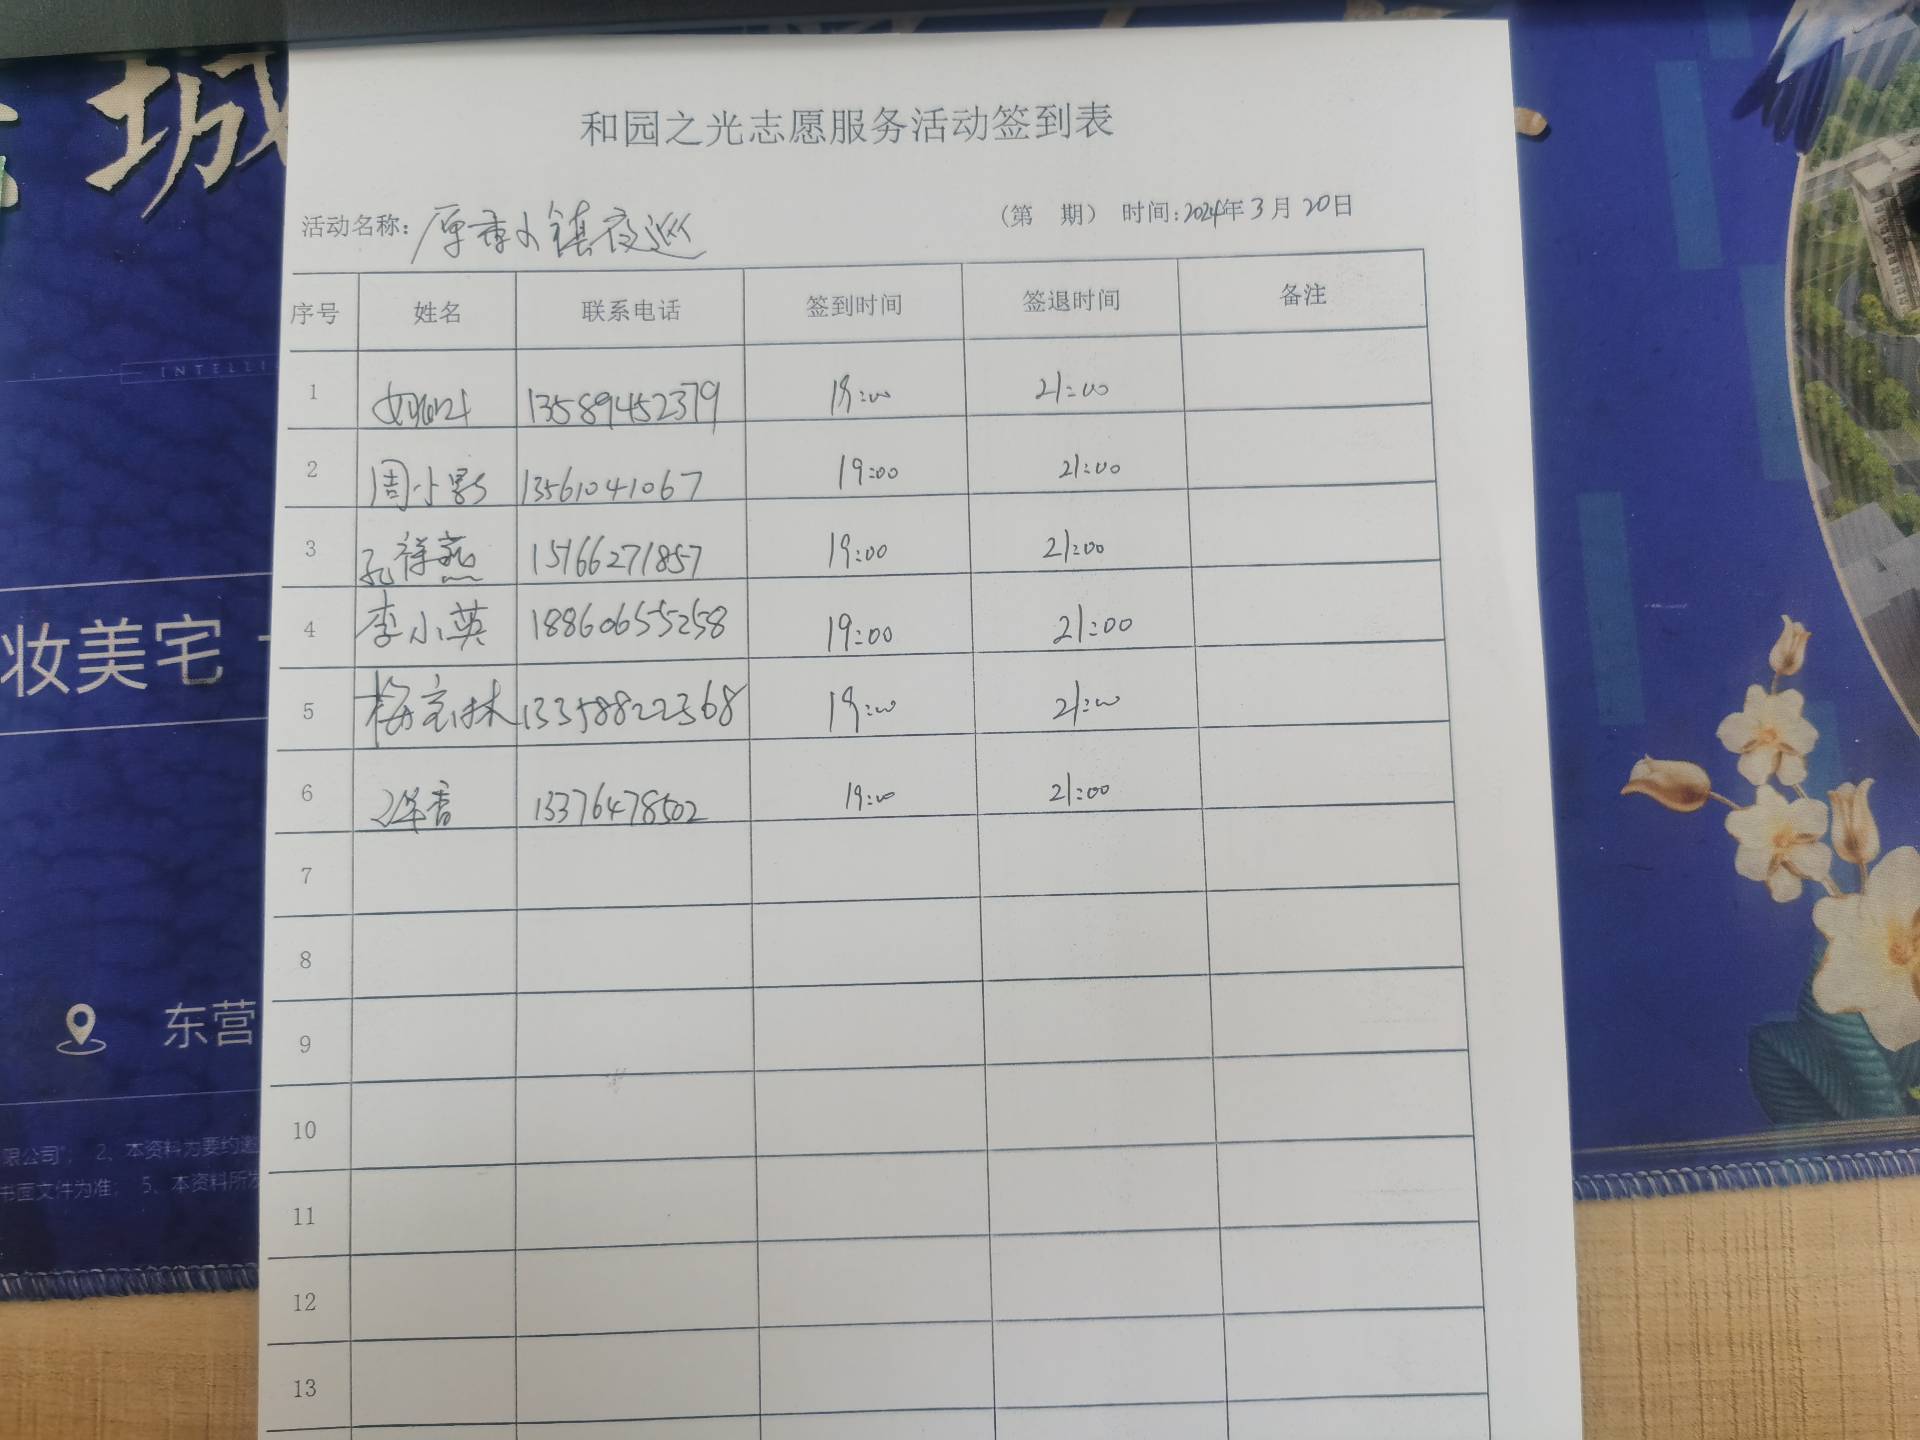 城
INTELLI
妆美宅
东营
限公司"; 2、本资料为要约邀
书面文件为准; 5、本资料所发
和园之光志愿服务活动签到表
活动名称: 小镇夜巡 (第 期) 时间:2024年3月20日
序号 姓名 联系电话 签到时间 签退时间 备注
1 13589452379 19:00 21:00
2 周小影 13561041067 19:00 21:00
3 孔祥燕 15166271857 19:00 21:00
4 李小英 18860655258 19:00 21:00
5 梅宝林 13358822368 19:00 21:00
6 13376478502 19:00 21:00
7
8
9
10
11
12
13